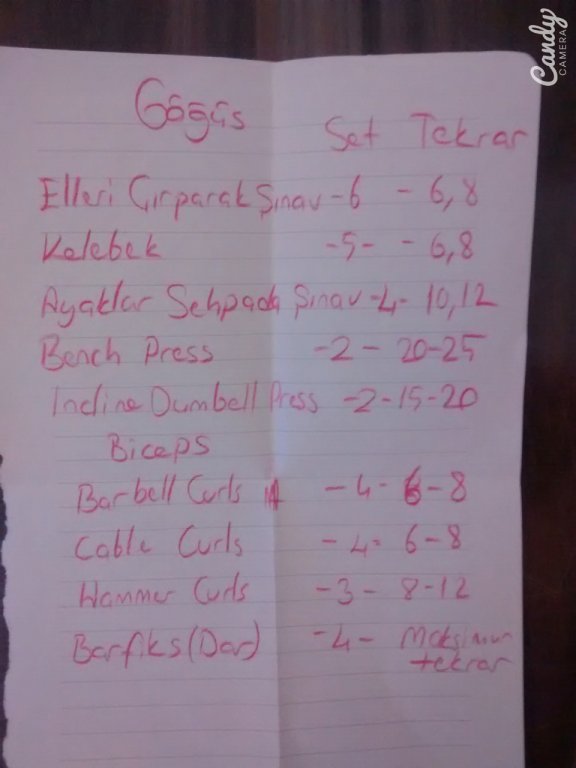 Candy
CAMERA
Göğüs
Set Tekrar
Elleri Çırparak Şınav -6 - 6,8
Kelebek -5- - 6,8
Ayaklar Sehpada Şınav -4- 10,12
Bench Press -2- 20-25
Incline Dumbell Press -2-15-20
Biceps
Barbell Curls -4- 6-8
Cable Curls -4- 6-8
Hammer Curls -3- 8-12
Barfiks (Dar) -4- Maksimum
tekrar